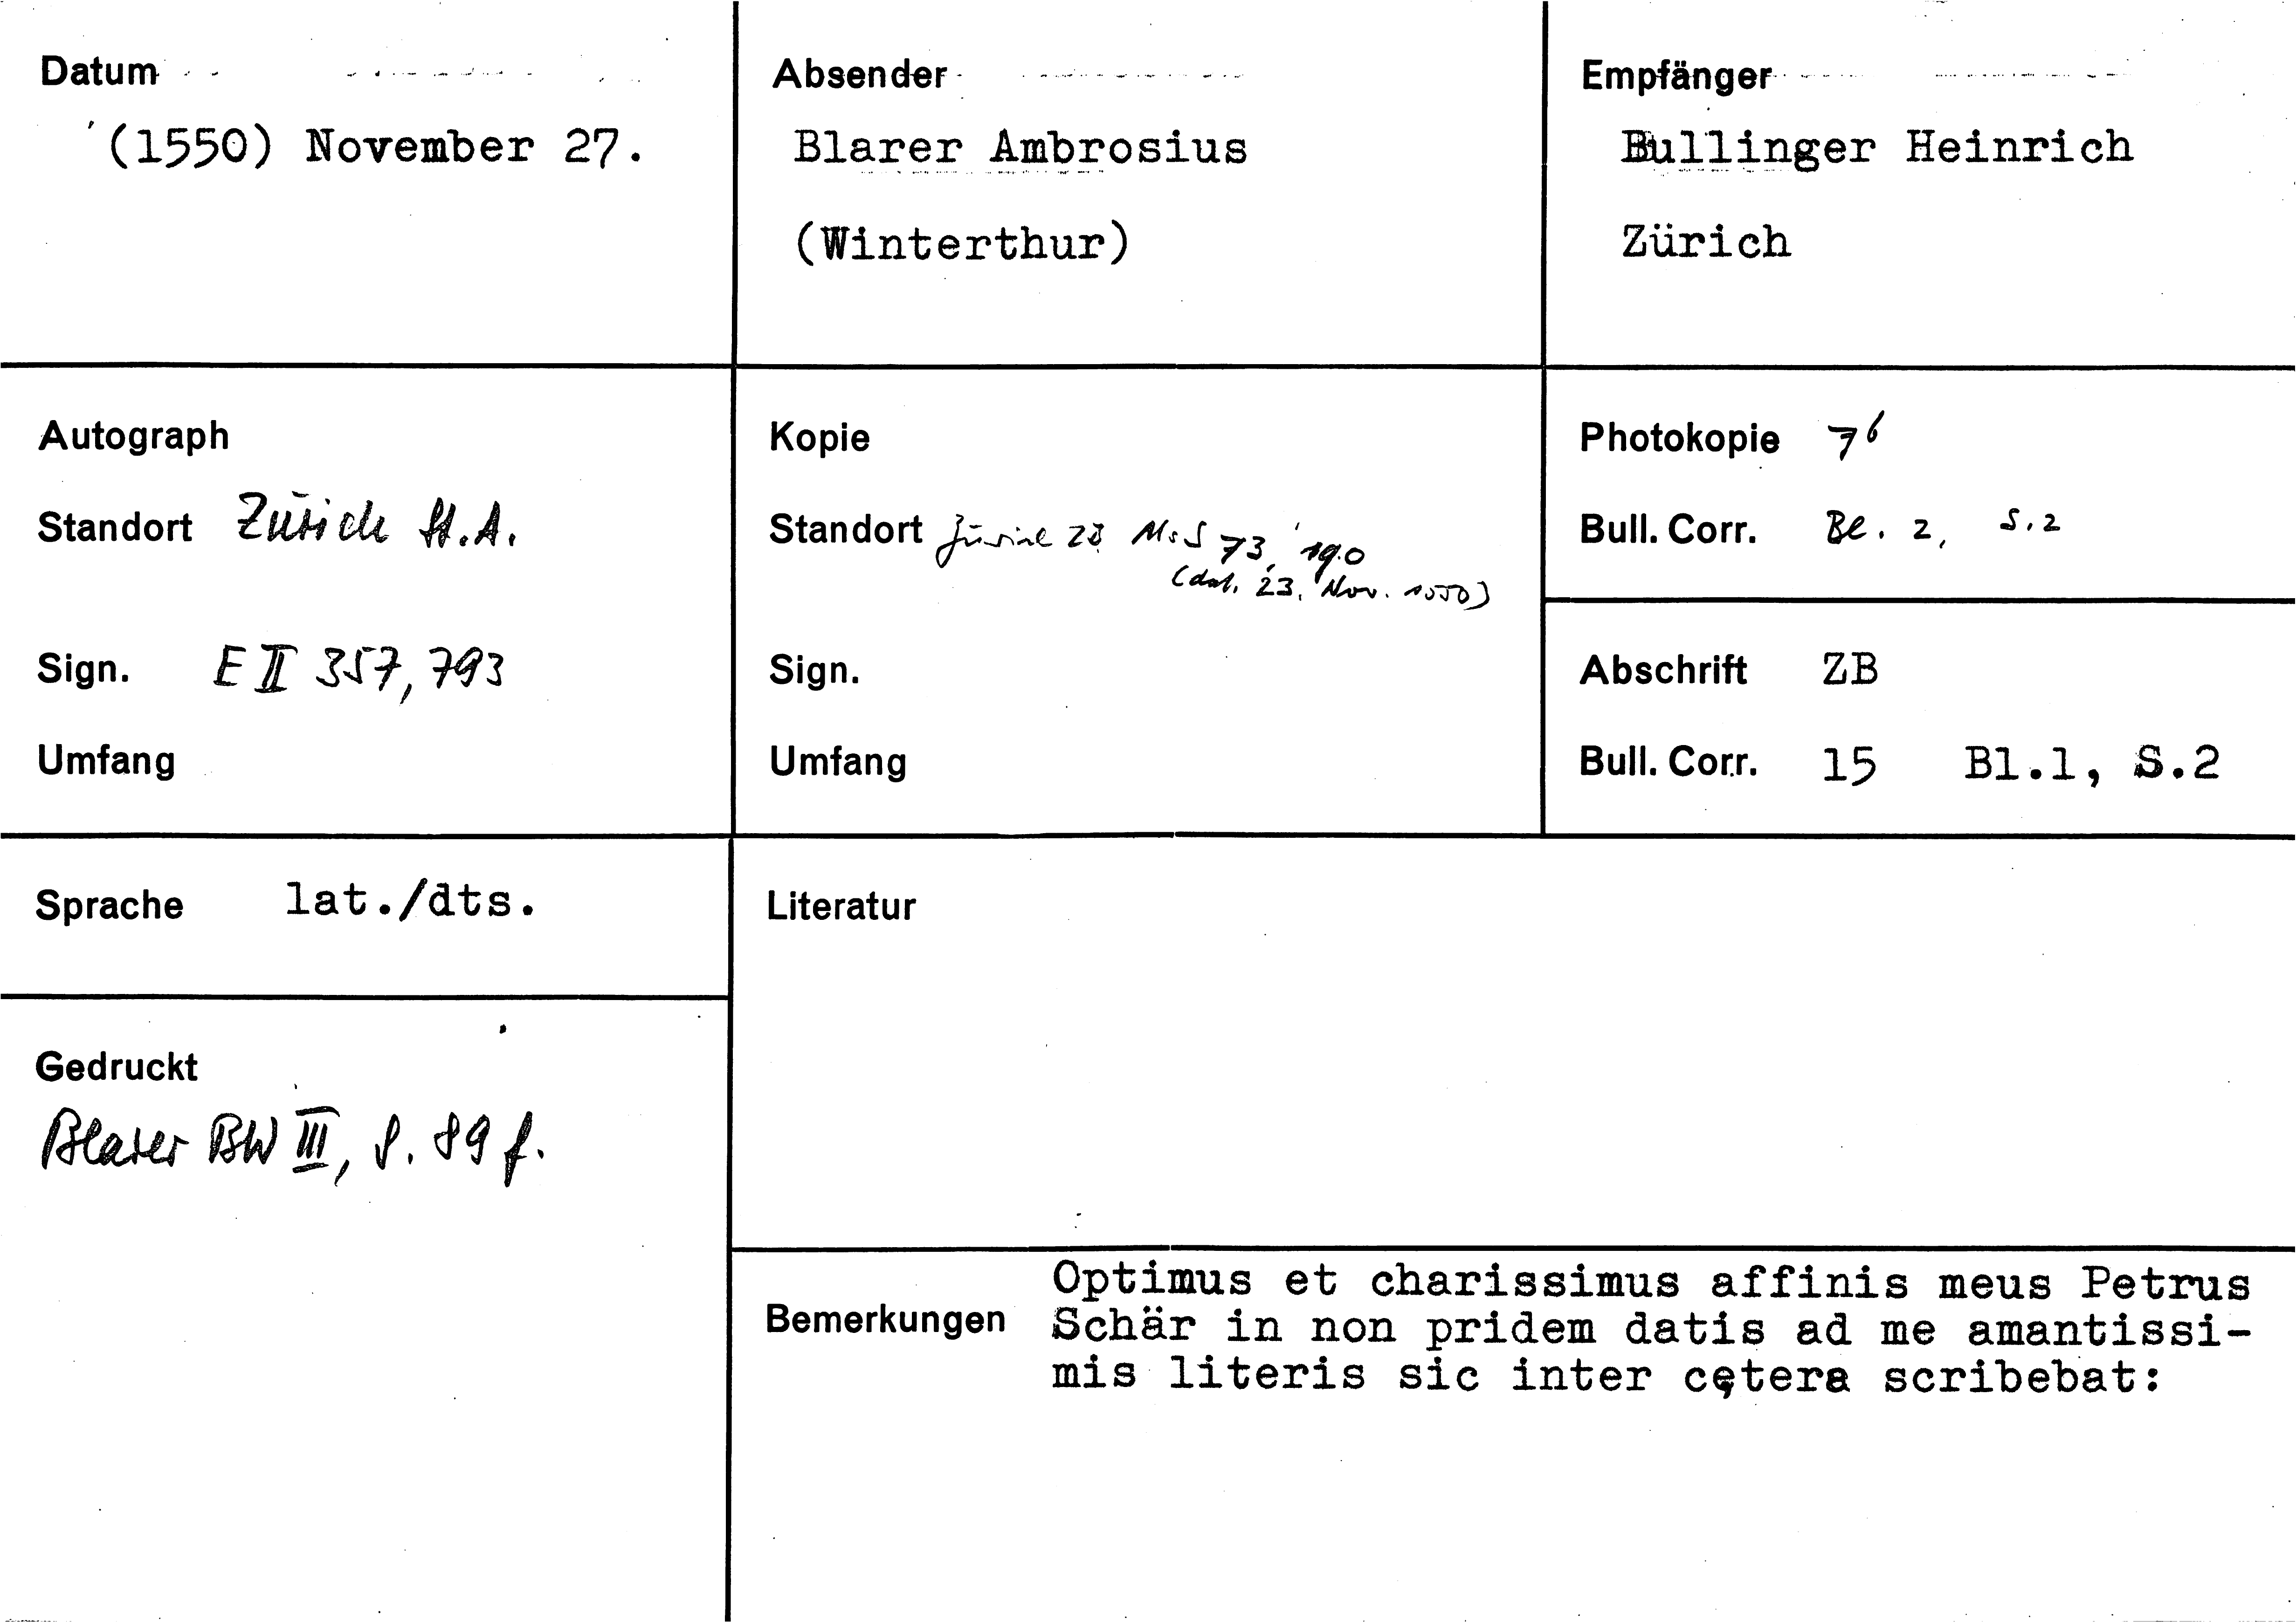 Datum
(1550) November 27.
Absender
Blarer Ambrosius
(Winterthur)
Empfänger
Bullinger Heinrich
Zürich
Autograph
Standort Zürich St.A.
Sign. E II 357, 793
Umfang
Kopie
Standort Zürich ZB Ms S 73, 190
(dat. 23. Nov. 1550)
Sign.
Umfang
Photokopie 76
Bull. Corr. Bl. 2, S.2
Abschrift ZB
Bull. Corr. 15 Bl.1, S.2
Sprache lat./dts.
Gedruckt
Blarer BW III, S. 89 f.
Literatur
Bemerkungen
Optimus et charissimus affinis meus Petrus
Schär in non pridem datis ad me amantissi-
mis literis sic inter cętera scribebat: